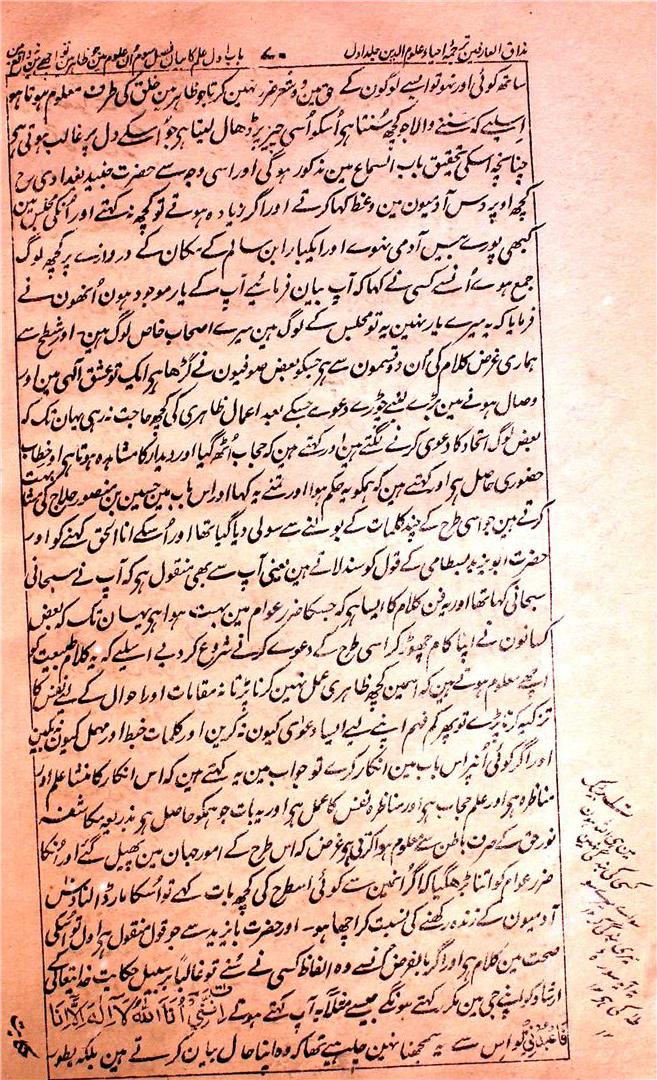 مذاق العارفین ترجمہ احیاء علوم الدین جلد اول ۷۰ باب اول علم کا بیان
ساتھ کوئی اور نہو تو ایسے لوگون کے حق مین وہ شعر ضرر نہین کرتا جو ظاہر مین خلق کی طرف معلوم ہوتا ہو
اسلیے کہ سننے والا جو کچھ سُنتا ہی اُسکو اُسی چیز پر ڈھال لیتا ہی جو اُسکے دل پر غالب ہوتی ہی
چنانچہ اسکی تحقیق باب السماع مین مذکور ہوگی اور اسی وجہ سے حضرت جنید بغدادی رح
کچھ اوپر دس آدمیون مین وعظ کہا کرتے اور اگر زیادہ ہوتے تو کچھ نہ کہتے اور اُنکی مجلس مین
کبھی پورے بیس آدمی نہوے اور ایکبار ابن سالم کے مکان کے دروازے پر کچھ لوگ
جمع ہوے اُنسے کسی نے کہا کہ آپ بیان فرمائیے آپ کے یار موجود ہون اُنھون نے
فرمایا کہ یہ میرے یار نہین یہ تو مجلس کے لوگ ہین میرے اصحاب خاص لوگ ہین۔ اور شطح سے
ہماری غرض کلام کی اُن دو قسمون سے ہی جسکو بعض صوفیون نے گڑھا ہی ایک تو عشق الٰہی مین اور
وصال ہونے مین بڑے لنبے چوڑے دعوے جسکے بعد اعمال ظاہری کی کچھ حاجت نہ رہی یہان تک کہ
بعض لوگ اتحاد کا دعویٰ کرنے لگتے ہین اور کہتے ہین کہ حجاب اُٹھ گیا اور دیدار کا مشاہدہ ہوتا ہی اور خطاب
حضوری حاصل ہی اور کہتے ہین کہ ہمکو یہ حکم ہوا اور ہمنے یہ کہا اور اس باب مین حسین بن منصور حلاج کی مشابہت
کرتے ہین جو اسی طرح کے چند کلمات کے بولنے سے سولی دیا گیا تھا اور اُسکے انا الحق کہنے کو اور
حضرت ابو یزید بسطامی کے قول کو سند لاتے ہین یعنی آپ سے بھی منقول ہی کہ آپ نے سبحانی
سبحانی کہا تھا اور یہ فن کلام کا ایسا ہی کہ جسکا ضرر عوام مین بہت ہوا ہی یہان تک کہ بعض
کسانون نے اپنا کام چھوڑ کر اسی طرح کے دعوے کرنے شروع کر دیے اسلیے کہ یہ کلام طبیعت کو
اچھے معلوم ہوتے ہین کہ اسمین کچھ ظاہری عمل نہین کرنا پڑتا نہ مقامات اور احوال کے لیے نفس کا
تزکیہ کرنا پڑے تو پھر کم فہم اپنے لیے ایسا دعویٰ کیون نہ کرین اور کلمات خبط اور مہمل کیون نہ بکین
اور اگر کوئی اُنپر اس باب مین انکار کرے تو جواب مین یہ کہتے ہین کہ اس انکار کا منشا علم اور
مناظرہ ہی اور علم حجاب ہی اور مناظرہ نفس کا عمل ہی اور یہ بات جو ہمکو حاصل ہی بذریعہ مکاشفہ
نور حق کے صرف باطن سے معلوم ہوا کرتی ہی غرض کہ اس طرح کے امور جہان مین پھیل گئے اور اُنکا
ضرر عوام کو اتنا بڑھ گیا کہ اگر اُنمین سے کوئی اسطرح کی کچھ بات کہے تو اُسکا مار ڈالنا دس
آدمیون کے زندہ رکھنے کی نسبت کر اچھا ہو۔ اور حضرت بایزید سے جو قول منقول ہی اول تو اُسکی
صحت مین کلام ہی اور اگر بالفرض اُنسے وہ الفاظ کسی نے سُنے تو غالباً بسبیل حکایت خدا تعالیٰ کے
ارشاد کو اپنے جی مین مکرر کہتے ہونگے جیسے مثلاً یہ آپ کہتے ہوتے اِنَّنِیْ اَنَا اللّٰهُ لَا اِلٰهَ اِلَّا اَنَا
فَاعْبُدْنِیْ تو اس سے یہ سمجھنا نہین چاہیے تھا کہ وہ اپنا حال بیان کرتے ہین بلکہ بطور